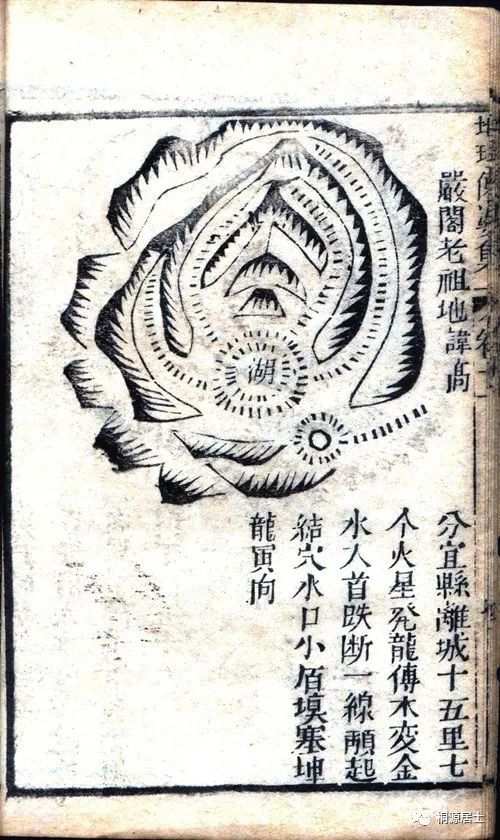 嚴閣老祖地諱髙
湖
分宜縣離城十五里七
个火星發龍傳木变金
水入首跌断一線頓起
結穴水口小塞坤
龍寅向
桐源居士